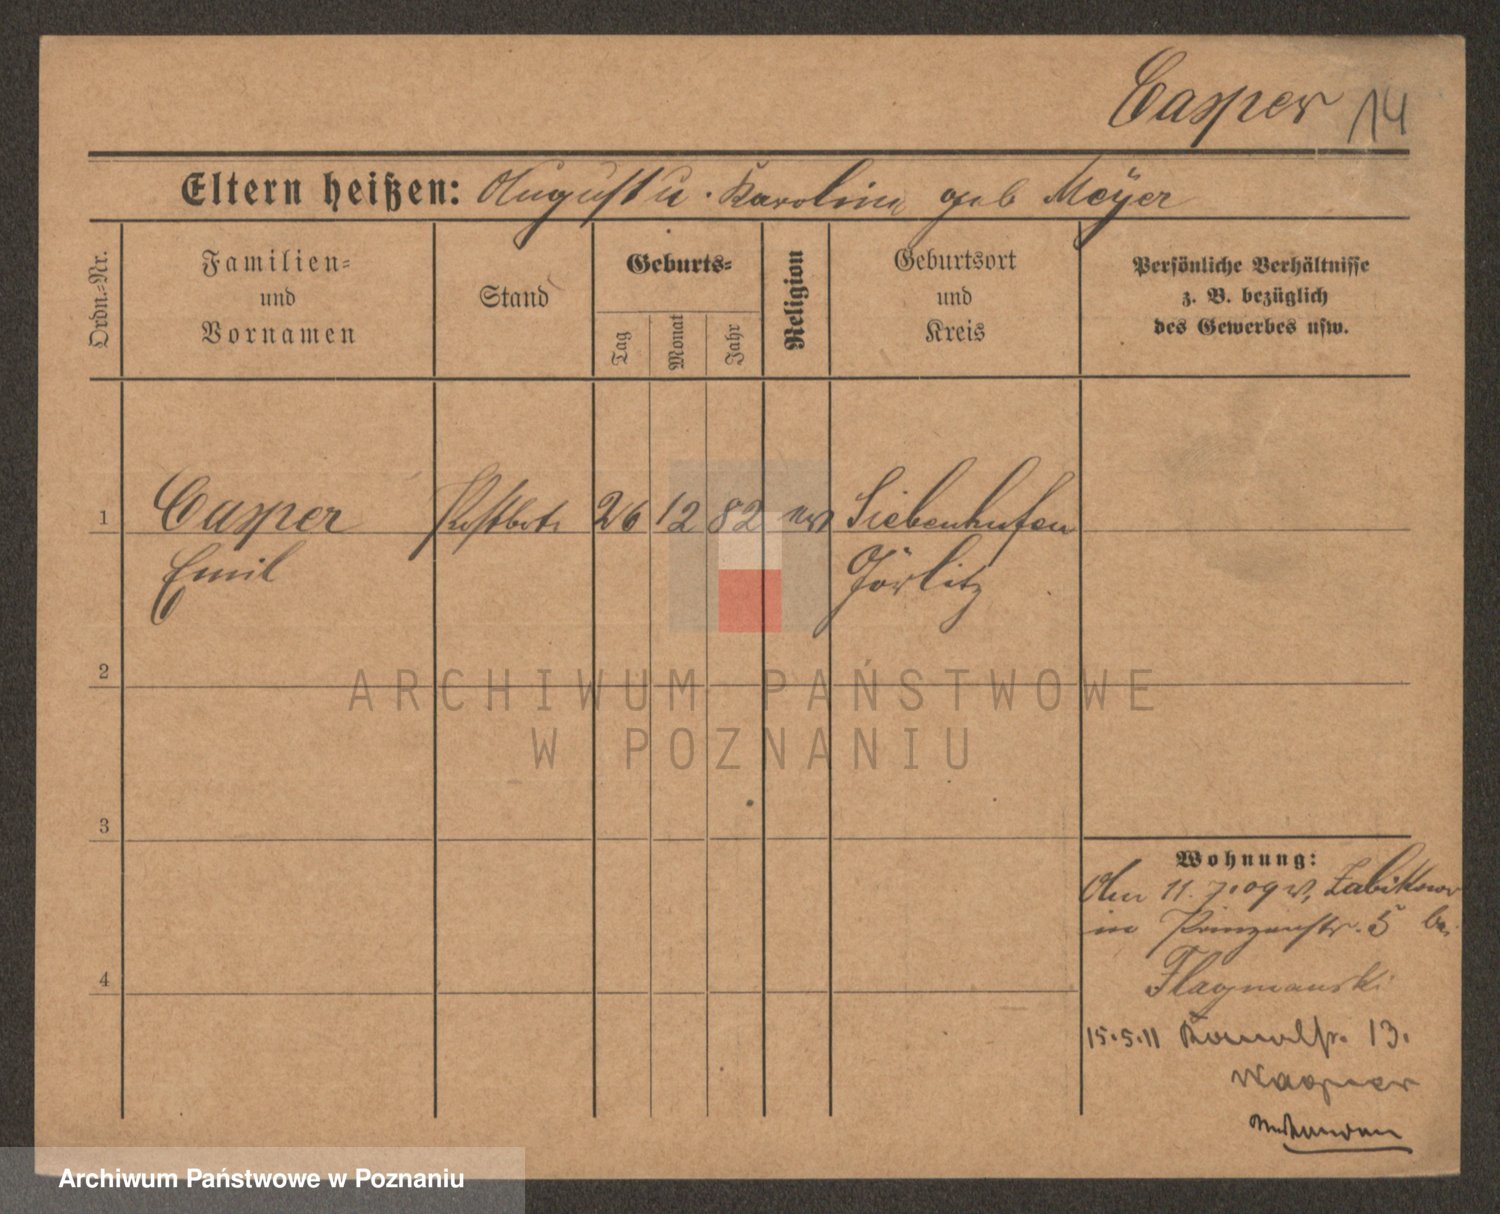 Casper 14
Eltern heißen: August u. Karolina geb Meyer
Ordn.=Nr.
Familien=
und
Vornamen
Stand
Geburts=
Tag
Monat
Jahr
Religion
Geburtsort
und
Kreis
Persönliche Verhältnisse
z. B. bezüglich
des Gewerbes usw.
1 Casper Postbote 26 12 82 ev Siebenhufen
Emil Görlitz
2
ARCHIWUM PAŃSTWOWE
W POZNANIU
3
Wohnung:
11. 7. 09 v. Zabikowo
in Prinzenstr. 5 bei
4
Flagmanski
15.5.11 Kanalstr. 13.
Wagner
Archiwum Państwowe w Poznaniu